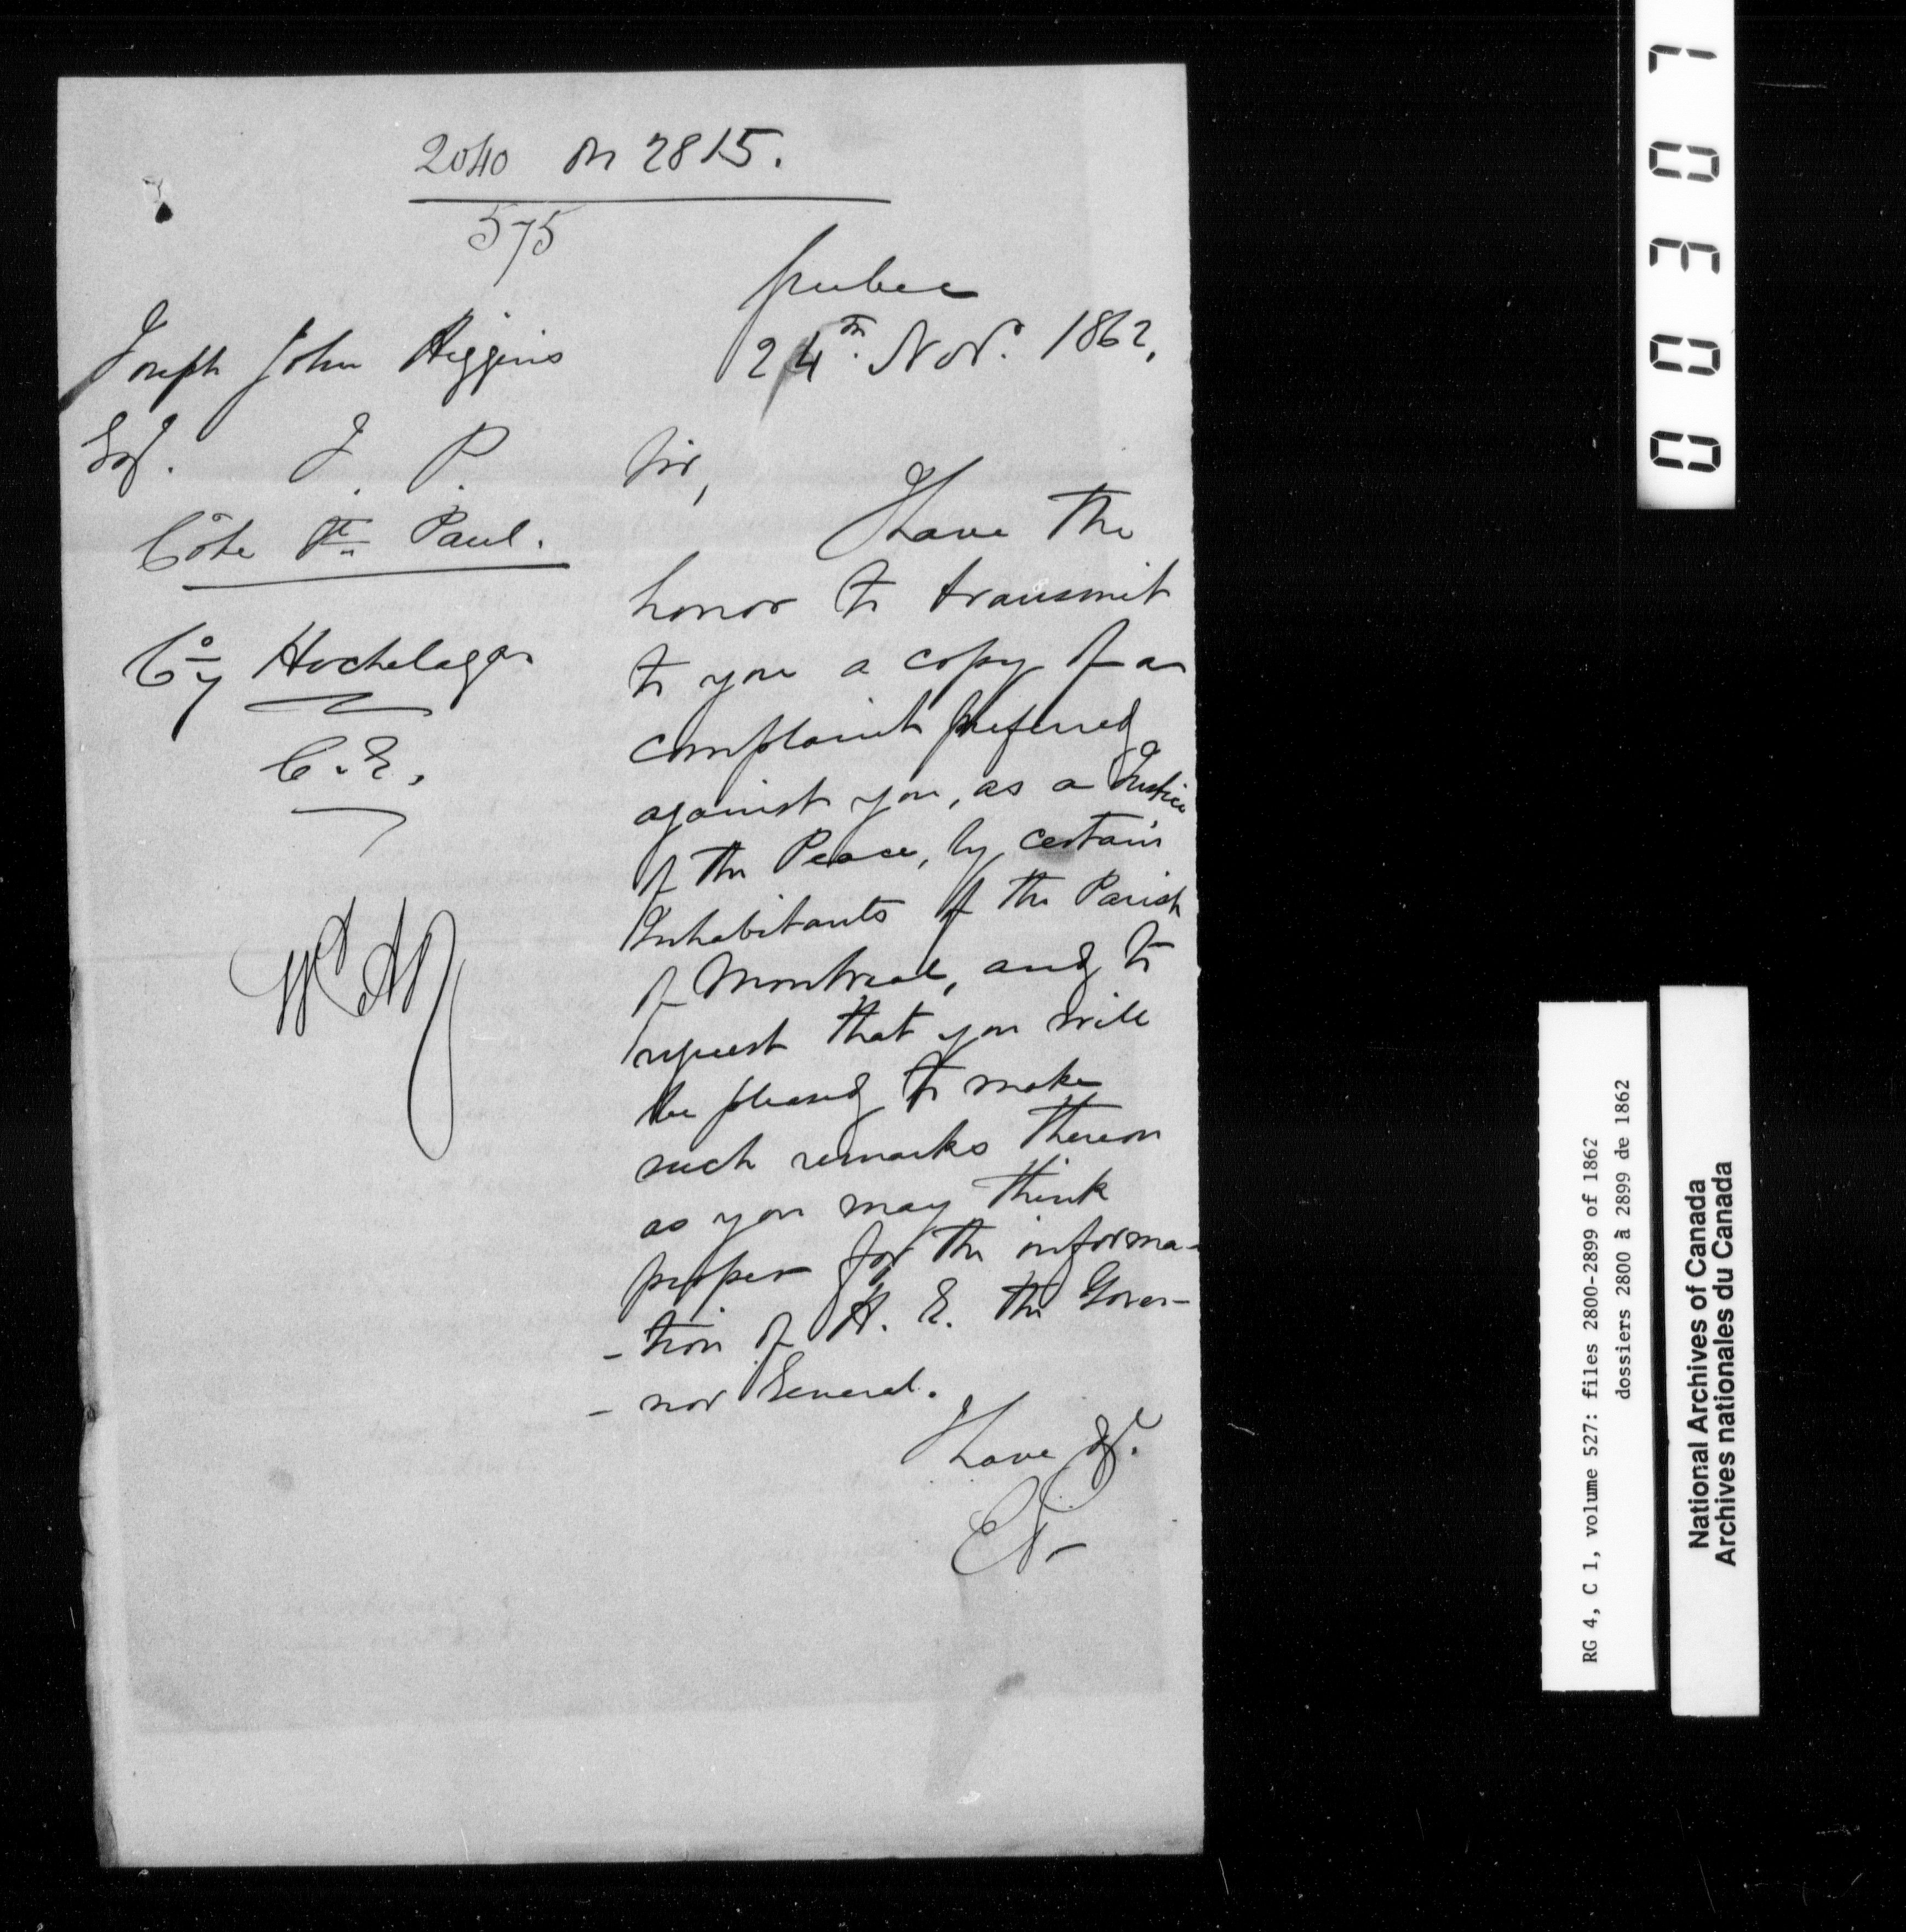 2040 on 2815.
575
Quebec
24th. Nov. 1862.
Joseph John Higgins
Esq. J. P.
Côte St. Paul.
Coy Hochelaga
C. E.
Sir,
I have the
honor to transmit
to you a copy of a
complaint preferred
against you, as a Justice
of the Peace, by certain
Inhabitants of the Parish
of Montreal, and to
request that you will
be pleased to make
such remarks thereon
as you may think
proper for the informa-
-tion of H. E. the Gover-
-nor General.
I have &c.
00307
RG 4, C 1, volume 527: files 2800-2899 of 1862
dossiers 2800 à 2899 de 1862
National Archives of Canada
Archives nationales du Canada